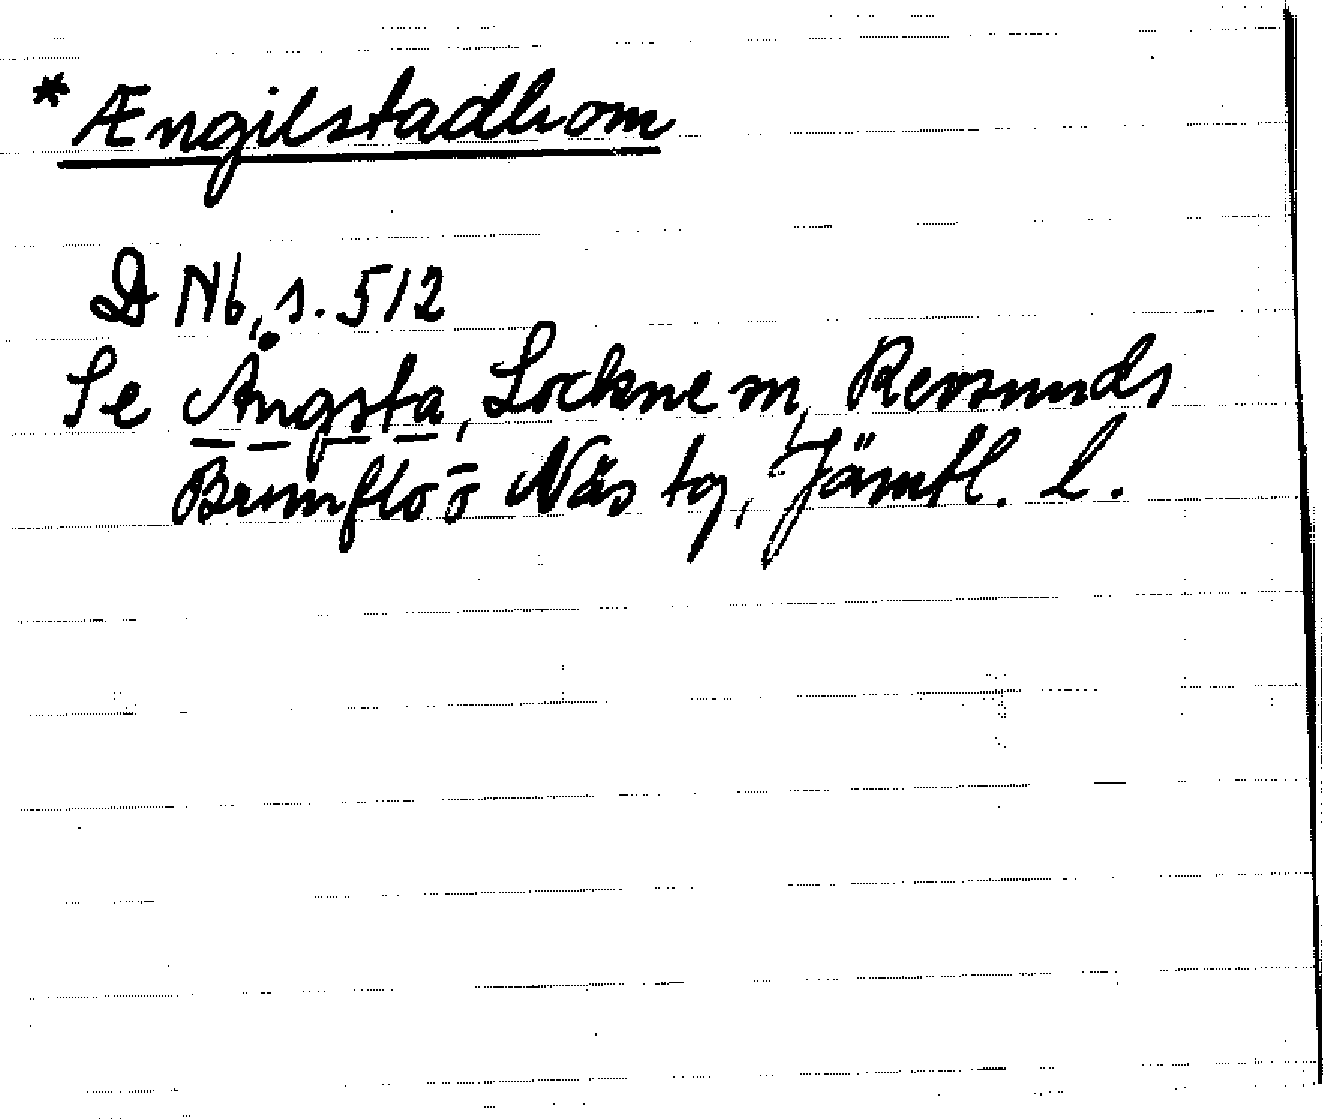 * Ængilstadhom
D Nb, s. 512
Se Ängsta, Lockne sn, Revsunds
Brunflo o Näs tg, Jämtl. l.